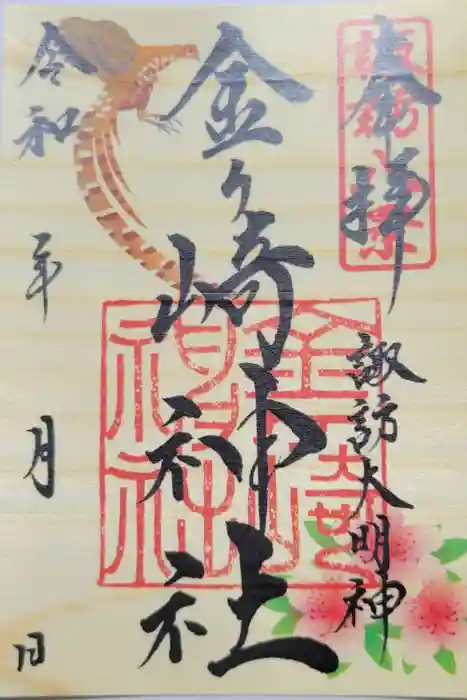 奉拝
諏訪大明神
金ヶ崎神社
令和
年
月
日